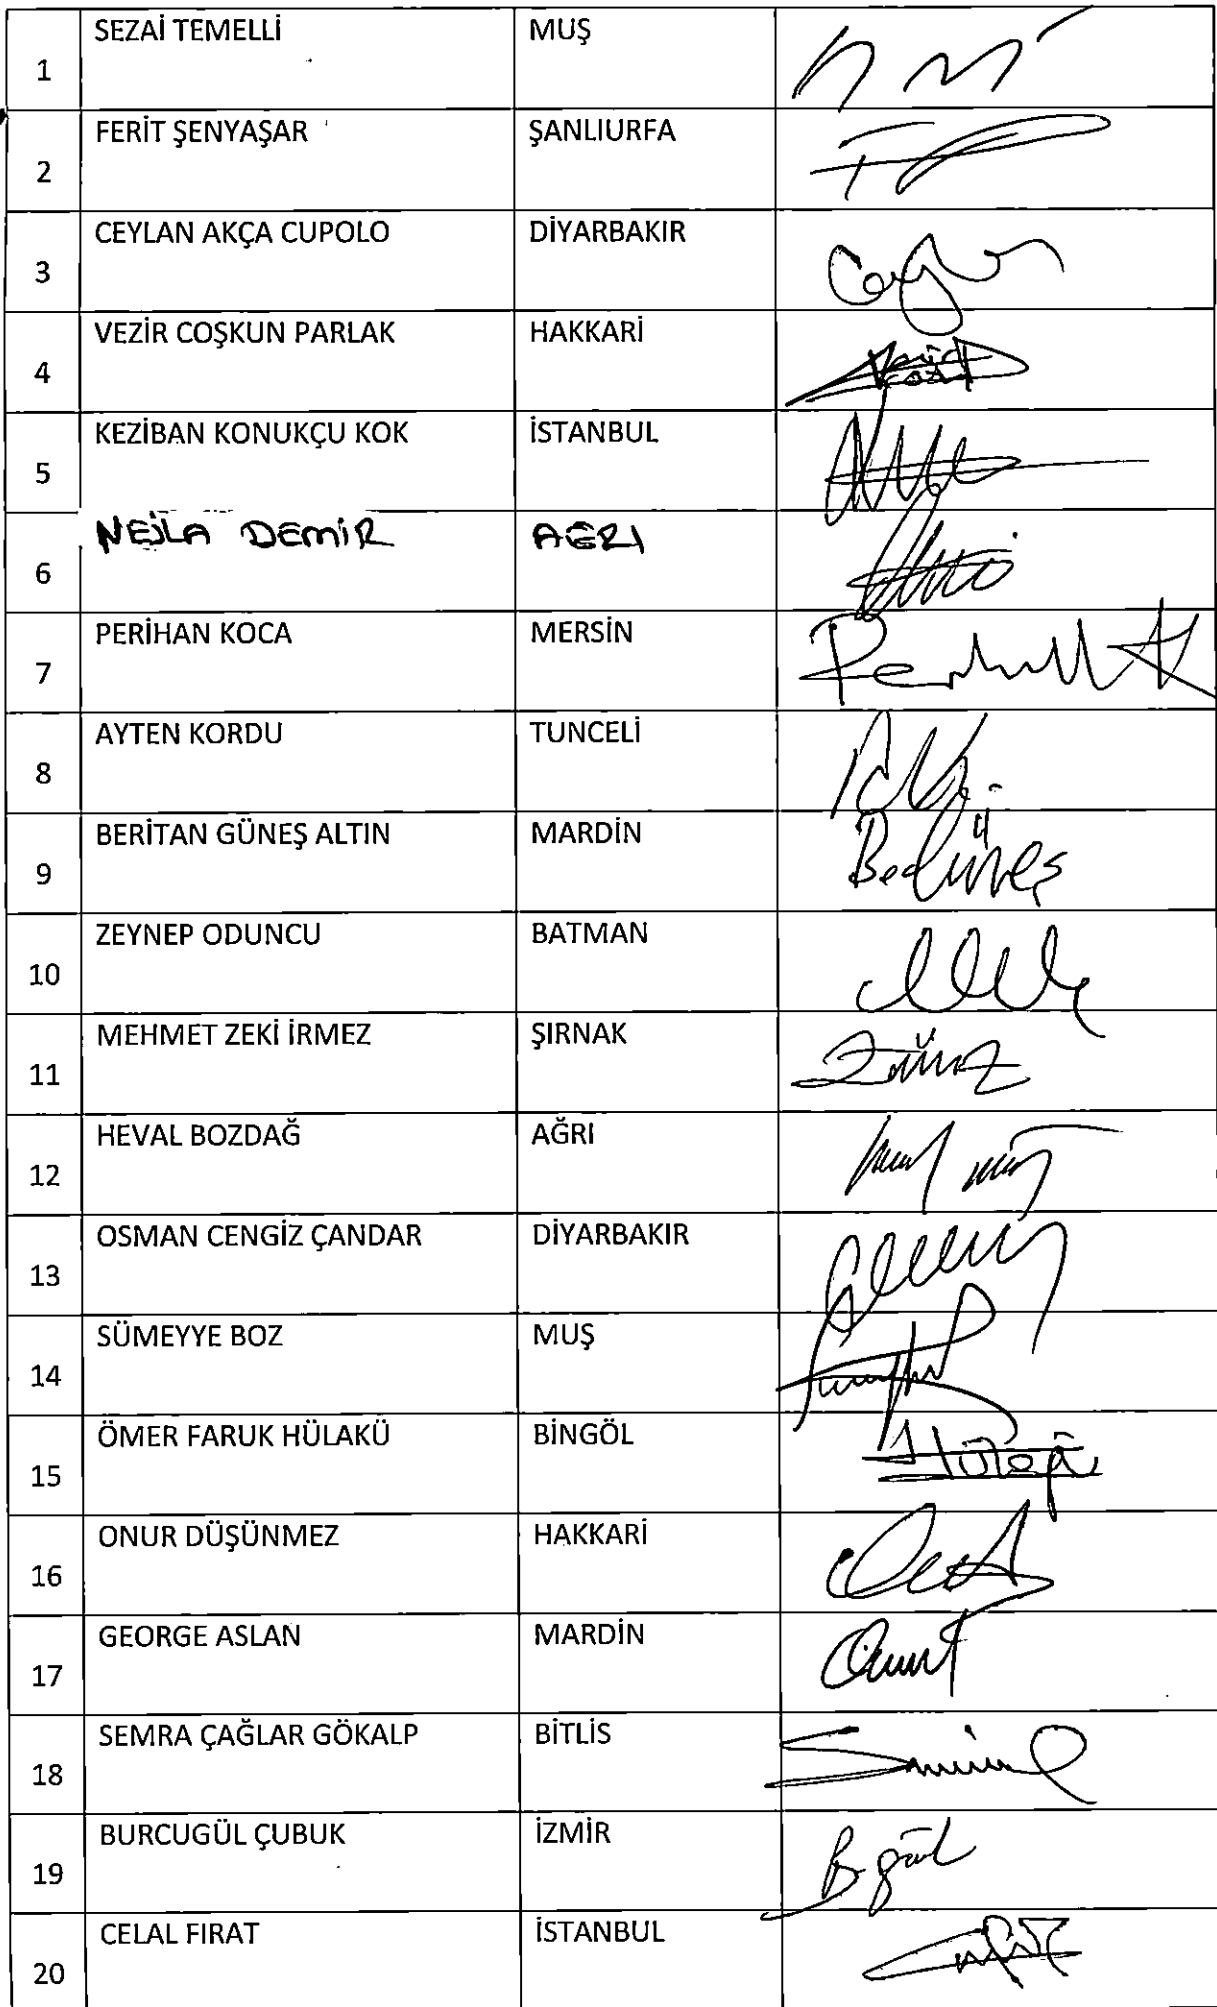 1 SEZAİ TEMELLİ MUŞ
2 FERİT ŞENYAŞAR ŞANLIURFA
3 CEYLAN AKÇA CUPOLO DİYARBAKIR
4 VEZİR COŞKUN PARLAK HAKKARİ
5 KEZİBAN KONUKÇU KOK İSTANBUL
6 NEJLA DEMİR AĞRI
7 PERİHAN KOCA MERSİN
8 AYTEN KORDU TUNCELİ
9 BERİTAN GÜNEŞ ALTIN MARDİN
10 ZEYNEP ODUNCU BATMAN
11 MEHMET ZEKİ İRMEZ ŞIRNAK
12 HEVAL BOZDAĞ AĞRI
13 OSMAN CENGİZ ÇANDAR DİYARBAKIR
14 SÜMEYYE BOZ MUŞ
15 ÖMER FARUK HÜLAKÜ BİNGÖL
16 ONUR DÜŞÜNMEZ HAKKARİ
17 GEORGE ASLAN MARDİN
18 SEMRA ÇAĞLAR GÖKALP BİTLİS
19 BURCUGÜL ÇUBUK İZMİR
20 CELAL FIRAT İSTANBUL